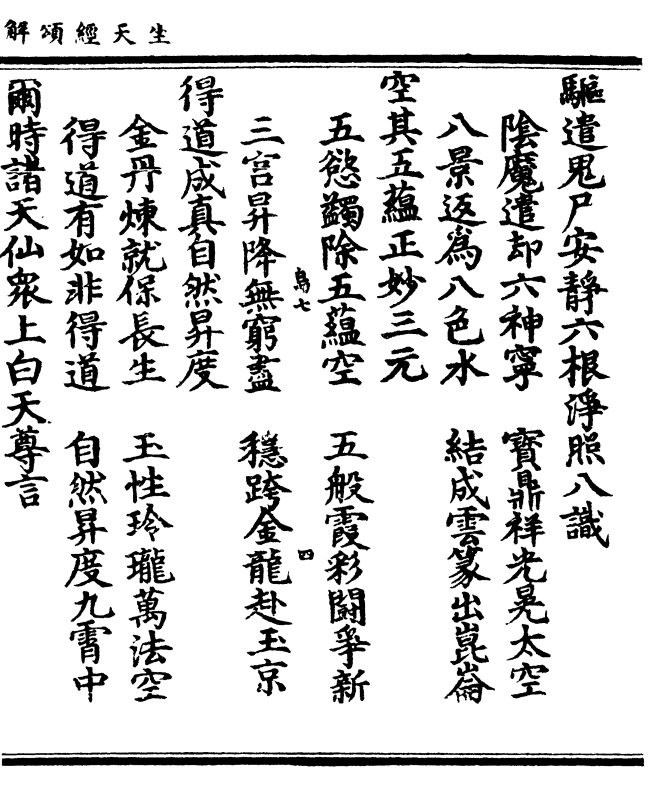 生天經頌解
驅遣鬼尸安靜六根淨照八識
陰魔遣却六神寧 寶鼎祥光晃太空
八景返爲八色水 結成雲篆出崑崙
空其五蘊正妙三元
五慾蠲除五蘊空 五般霞彩鬪爭新
鳥七 四
三宮昇降無窮盡 穩跨金龍赴玉京
得道成真自然昇度
金丹煉就保長生 玉性玲瓏萬法空
得道有如非得道 自然昇度九霄中
爾時諸天仙衆上白天尊言